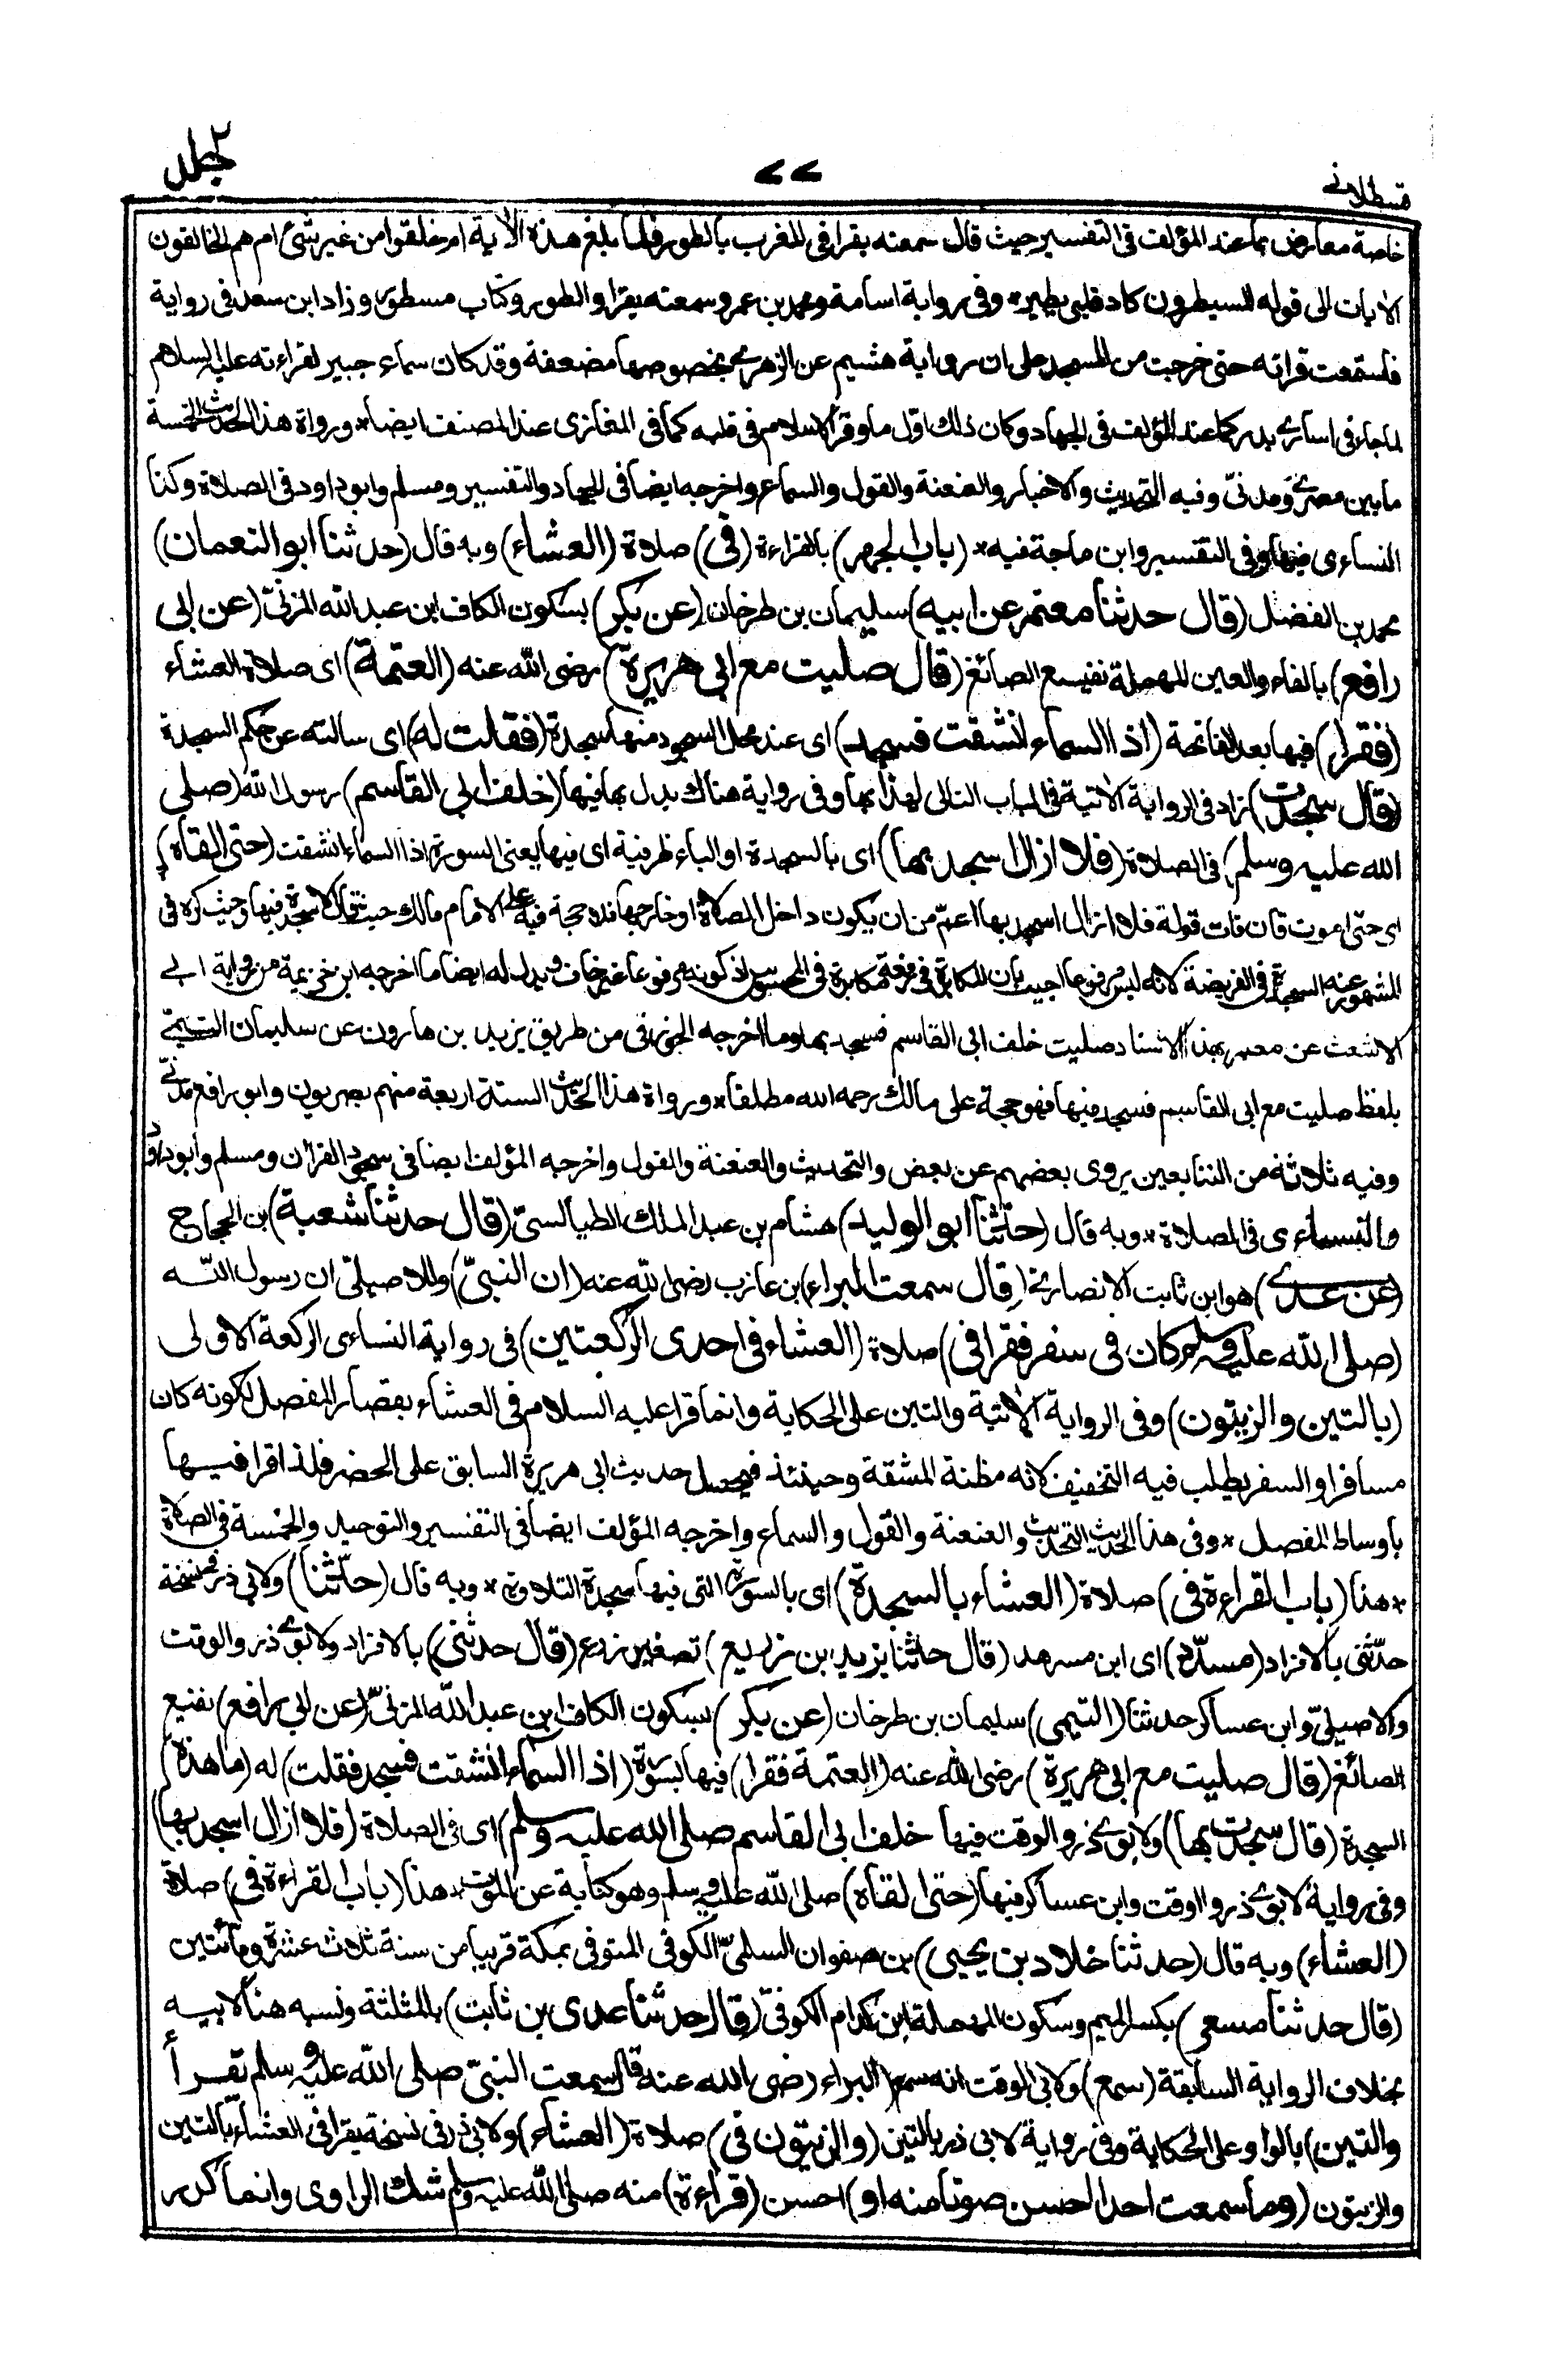 قسطلانى
٧٧
جلد ٢
خاصة معارض بما عند المؤلف فى التفسير حيث قال سمعته يقرا فى المغرب بالطور فلما بلغ هذه الآية ام خلقوا من غير شئ ام هم الخالقون
الايات الى قوله المسيطرون كاد قلبى يطير * وفى رواية اسامة ومحمد بن عمرو سمعته يقرا والطور وكتاب مسطور وزاد ابن سعد فى رواية
فاستمعت قراته حتى خرجت من المسجد على ان رواية هشيم عن الزهرى بخصوصها مضعفة وقد كان سماع جبير لقراءته عليه السلام
لما جاء فى اسارى بدر كما عند المؤلف فى الجهاد وكان ذلك اول ما وقر الاسلام فى قلبه كما فى المغازى عند المصنف ايضا * ورواة هذا الحديث الخمسة
ما بين مصرى ومدنى وفيه التحديث والاخبار والعنعنة والقول والسماع واخرجه ايضا فى الجهاد والتفسير ومسلم وابو داود فى الصلاة وكذا
النساءى فيها وفى التفسير وابن ماجة فيه * (باب الجهر) بالقراءة (فى) صلاة (العشاء) وبه قال (حدثنا ابو النعمان)
محمد بن الفضل (قال حدثنا معتمر عن ابيه) سليمان بن طرخان (عن بكر) بسكون الكاف ابن عبد الله المزنى (عن ابى
رافع) بالفاء والعين المهملة نفيع الصائغ (قال صليت مع ابى هريرة) رضى الله عنه (العتمة) اى صلاة العشاء
(فقرا) فيها بعد الفاتحة (اذا السماء انشقت فسجد) اى عند محل السجود منها سجدة (فقلت له) اى سالته عن حكم السجدة
(قال سجدت) زاد فى الرواية الآتية فى الباب التالى لهذا بها وفى رواية هناك بدل بها فيها (خلف ابى القاسم) رسول الله (صلى
الله عليه وسلم) فى الصلاة (فلا ازال اسجد بها) اى بالسجدة او الباء ظرفية اى فيها يعنى السورة اذا السماء انشقت (حتى القاه)
اى حتى اموت فان قلت قوله فلا ازال اسجد بها اعم من ان يكون داخل الصلاة او خارجها فلا حجة فيه على الامام مالك حيث قال لا سجدة فيها وحيث كره فى
المشهور عنه السجدة فى الفريضة لانه ليس مرفوعا اجيب بان المكابرة فى رفعه مكابرة فى المحسوس اذ كونه مرفوعا غير خاف ويدل له ايضا ما اخرجه ابن خزيمة من رواية ابى
الاشعث عن معمر بهذا الاسناد صليت خلف ابى القاسم فسجد بها وما اخرجه الجوزقى من طريق يزيد بن هارون عن سليمان التيمى
بلفظ صليت مع ابى القاسم فسجد فيها فهو حجة على مالك رحمه الله مطلقا * ورواة هذا الحديث الستة اربعة منهم بصريون وابو رافع مدنى
وفيه ثلاثة من التابعين يروى بعضهم عن بعض والتحديث والعنعنة والقول واخرجه المؤلف ايضا فى سجود القرآن ومسلم وابو داود
والنساءى فى الصلاة * وبه قال (حدثنا ابو الوليد) هشام بن عبد الملك الطيالسى (قال حدثنا شعبة) بن الحجاج
(عن عدى) هو ابن ثابت الانصارى (قال سمعت البراء) بن عازب رضى الله عنه (ان النبى) وللاصيلى ان رسول الله
(صلى الله عليه وسلم كان فى سفر فقرا فى) صلاة (العشاء فى احدى الركعتين) فى رواية النساءى الركعة الاولى
(بالتين والزيتون) وفى الرواية الآتية والتين على الحكاية وانما قرا عليه السلام فى العشاء بقصار المفصل لكونه كان
مسافرا والسفر يطلب فيه التخفيف لانه مظنة المشقة وحينئذ فيحمل حديث ابى هريرة السابق على الحضر فلذا قرا فيها
باوساط المفصل * وفى هذا الحديث التحديث والعنعنة والقول والسماع واخرجه المؤلف ايضا فى التفسير والتوحيد والخمسة فى الصلاة
* هذا (باب القراءة فى) صلاة (العشاء بالسجدة) اى بالسورة التى فيها سجدة التلاوة * وبه قال (حدثنا) ولابى ذر فى نسخة
حدثنى بالافراد (مسدد) اى ابن مسرهد (قال حدثنا يزيد بن زريع) تصغير زرع (قال حدثنى) بالافراد ولابوى ذر والوقت
والاصيلى وابن عساكر حدثنا (التيمى) سليمان بن طرخان (عن بكر) بسكون الكاف ابن عبد الله المزنى (عن ابى رافع) نفيع
الصائغ (قال صليت مع ابى هريرة) رضى الله عنه (العتمة فقرا) فيها بسورة (اذا السماء انشقت فسجد فقلت) له (ما هذه)
السجدة (قال سجدت بها) ولابوى ذر والوقت فيها خلف ابى القاسم صلى الله عليه وسلم) اى فى الصلاة (فلا ازال اسجد بها)
وفى رواية لابوى ذر والوقت وابن عساكر فيها (حتى القاه) صلى الله عليه وسلم وهو كناية عن الموت * هذا (باب القراءة فى) صلاة
(العشاء) وبه قال (حدثنا خلاد بن يحيى) بن صفوان السلمى الكوفى المتوفى بمكة قريبا من سنة ثلاث عشرة ومائتين
(قال حدثنا مسعر) بكسر الميم وسكون المهملة ابن كدام الكوفى (قال حدثنا عدى بن ثابت) بالمثلثة ونسبه هنا لابيه
بخلاف الرواية السابقة (سمع) ولابى الوقت انه سمع (البراء رضى الله عنه قال سمعت النبى صلى الله عليه وسلم يقرأ
والتين) بالواو على الحكاية وفى رواية لابى ذر بالتين (والزيتون فى) صلاة (العشاء) ولابى ذر فى نسخة يقرا فى العشاء بالتين
والزيتون (وما سمعت احدا احسن صوتا منه او) احسن (قراءة) منه صلى الله عليه وسلم شك الراوى وانما كرر